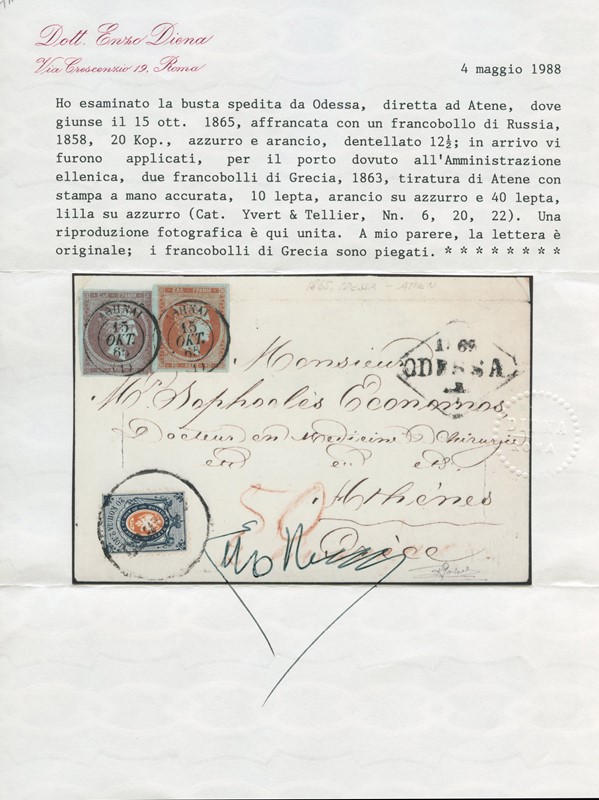 Dott. Enzo Diena
Via Crescenzio 19, Roma
4 maggio 1988
Ho esaminato la busta spedita da Odessa, diretta ad Atene, dove
giunse il 15 ott. 1865, affrancata con un francobollo di Russia,
1858, 20 Kop., azzurro e arancio, dentellato 12½; in arrivo vi
furono applicati, per il porto dovuto all'Amministrazione
ellenica, due francobolli di Grecia, 1863, tiratura di Atene con
stampa a mano accurata, 10 lepta, arancio su azzurro e 40 lepta,
lilla su azzurro (Cat. Yvert & Tellier, Nn. 6, 20, 22). Una
riproduzione fotografica è qui unita. A mio parere, la lettera è
originale; i francobolli di Grecia sono piegati. * * * * * * * *
ΑΘΗΝΑΙ
15
ΟΚΤ.
65
(1)
ΑΘΗΝΑΙ
15
ΟΚΤ.
65
(1)
ODESSA
Monsieur
Mr Sophoclès Economos,
Docteur en Medecine & Chirurgie
etc etc etc.
Athènes
Grèce
50
DIENA
ROMA